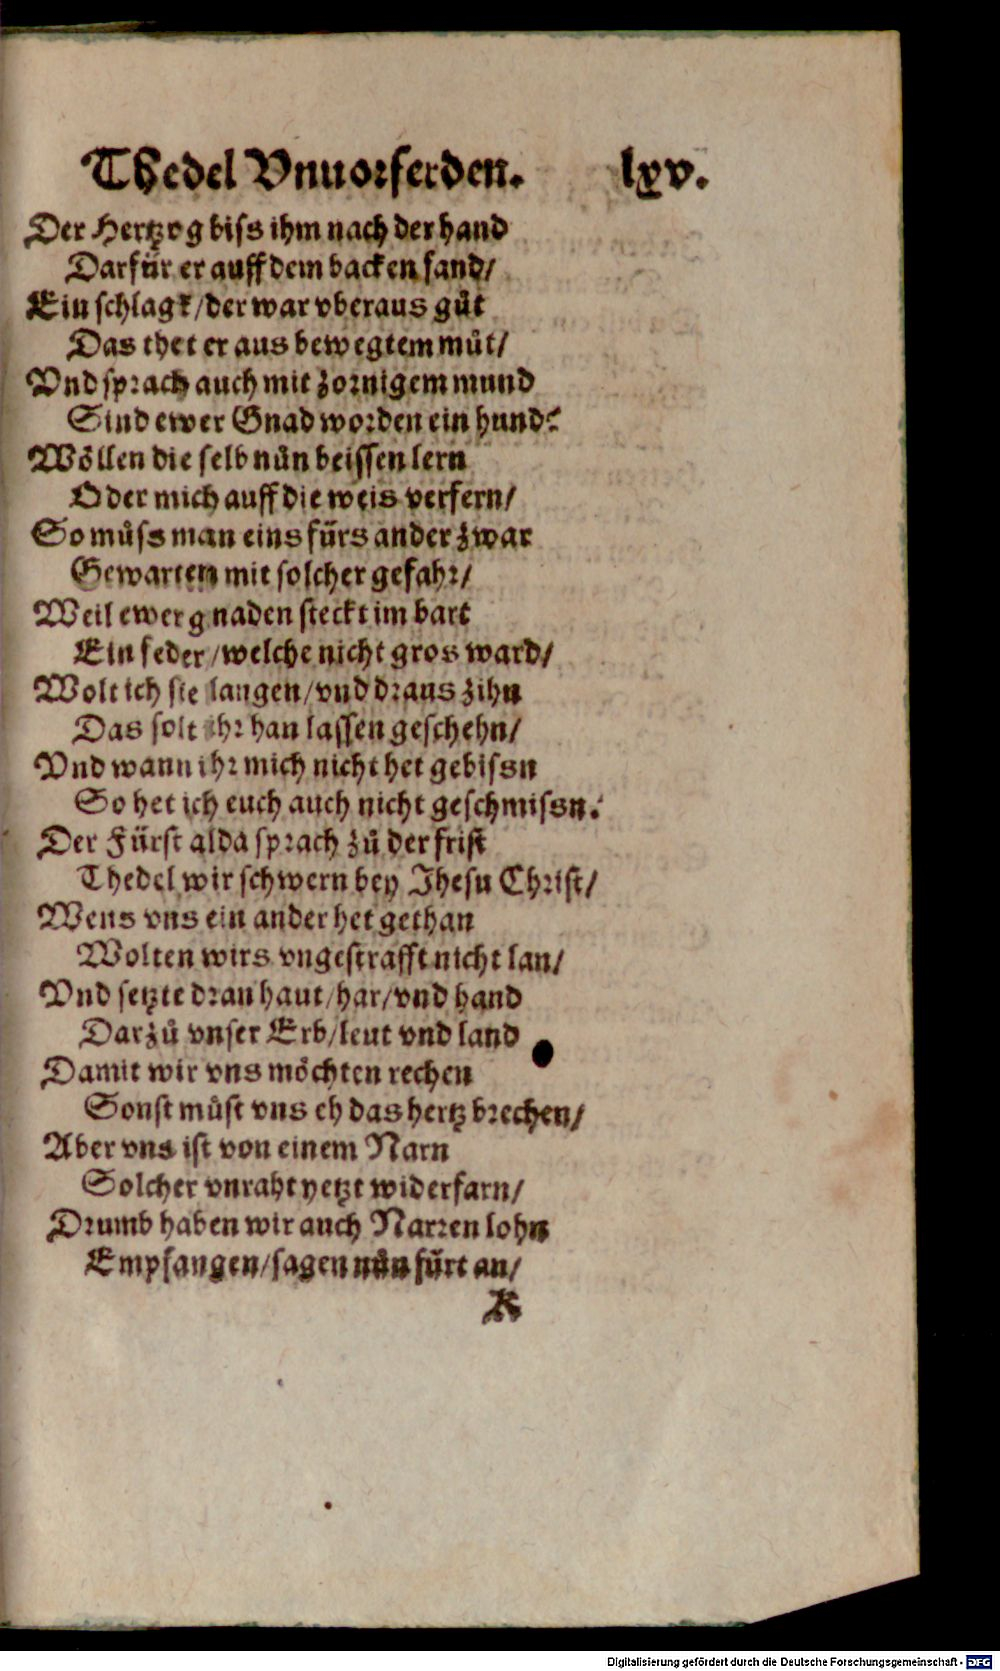 Thedel Vnuorferden. lxv.
Der Hertzog biss ihm nach der hand
Darfür er auff dem backen fand/
Ein schlagk/der war vberaus gůt
Das thet er aus bewegtem můt/
Vnd sprach auch mit zornigem mund
Sind ewer Gnad worden ein hund?
Wöllen die selb nůn beissen lern
Oder mich auff die weis verfern/
So můss man eins fürs ander zwar
Gewarten mit solcher gefahr/
Weil ewer gnaden steckt im bart
Ein feder/welche nicht gros ward/
Wolt ich sie langen/vnd draus zihn
Das solt ihr han lassen geschehn/
Vnd wann ihr mich nicht het gebissn
So het ich euch auch nicht geschmissn.
Der Fürst alda sprach zů der frist
Thedel wir schwern bey Jhesu Christ/
Wens vns ein ander het gethan
Wolten wirs vngestrafft nicht lan/
Vnd setzte dran haut/har/vnd hand
Darzů vnser Erb/leut vnd land
Damit wir vns möchten rechen
Sonst můst vns eh das hertz brechen/
Aber vns ist von einem Narn
Solcher vnraht yetzt widerfarn/
Drumb haben wir auch Narren lohn
Empfangen/sagen nůn fürt an/
K
Digitalisierung gefördert durch die Deutsche Forschungsgemeinschaft - DFG